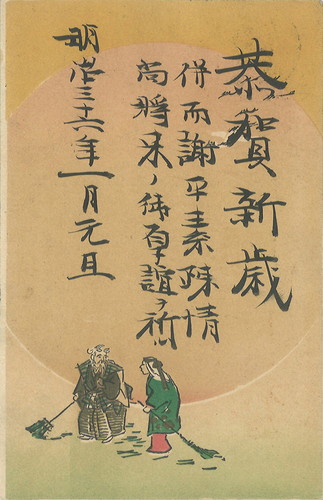 恭賀新歳
併而謝平素疎情
尚將来ノ御厚誼ヲ祈
明治三十六年一月元旦